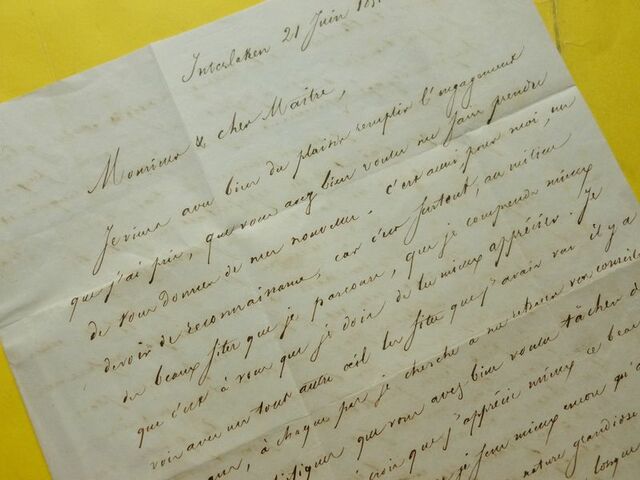 Interlaken 21 Juin 185
Monsieur & cher Maître,
Je viens avec bien du plaisir remplir l'engagement
que j'ai pris, que vous avez bien voulu me faire prendre
de vous donner de mes nouvelles. C'est aussi pour moi, un
devoir de reconnaissance, car c'est surtout, au milieu
des beaux sites que je parcours, que je comprends mieux
que c'est à vous que je dois de les mieux apprécier. Je
vois avec un tout autre œil les sites que j'avais vus il y a
, à chaque pas je cherche à me retracer vos conseils
que vous avez bien voulu tâcher d
crois que j'apprécie mieux ce beau
je sens mieux encore qu'a
nature grandiose
longue